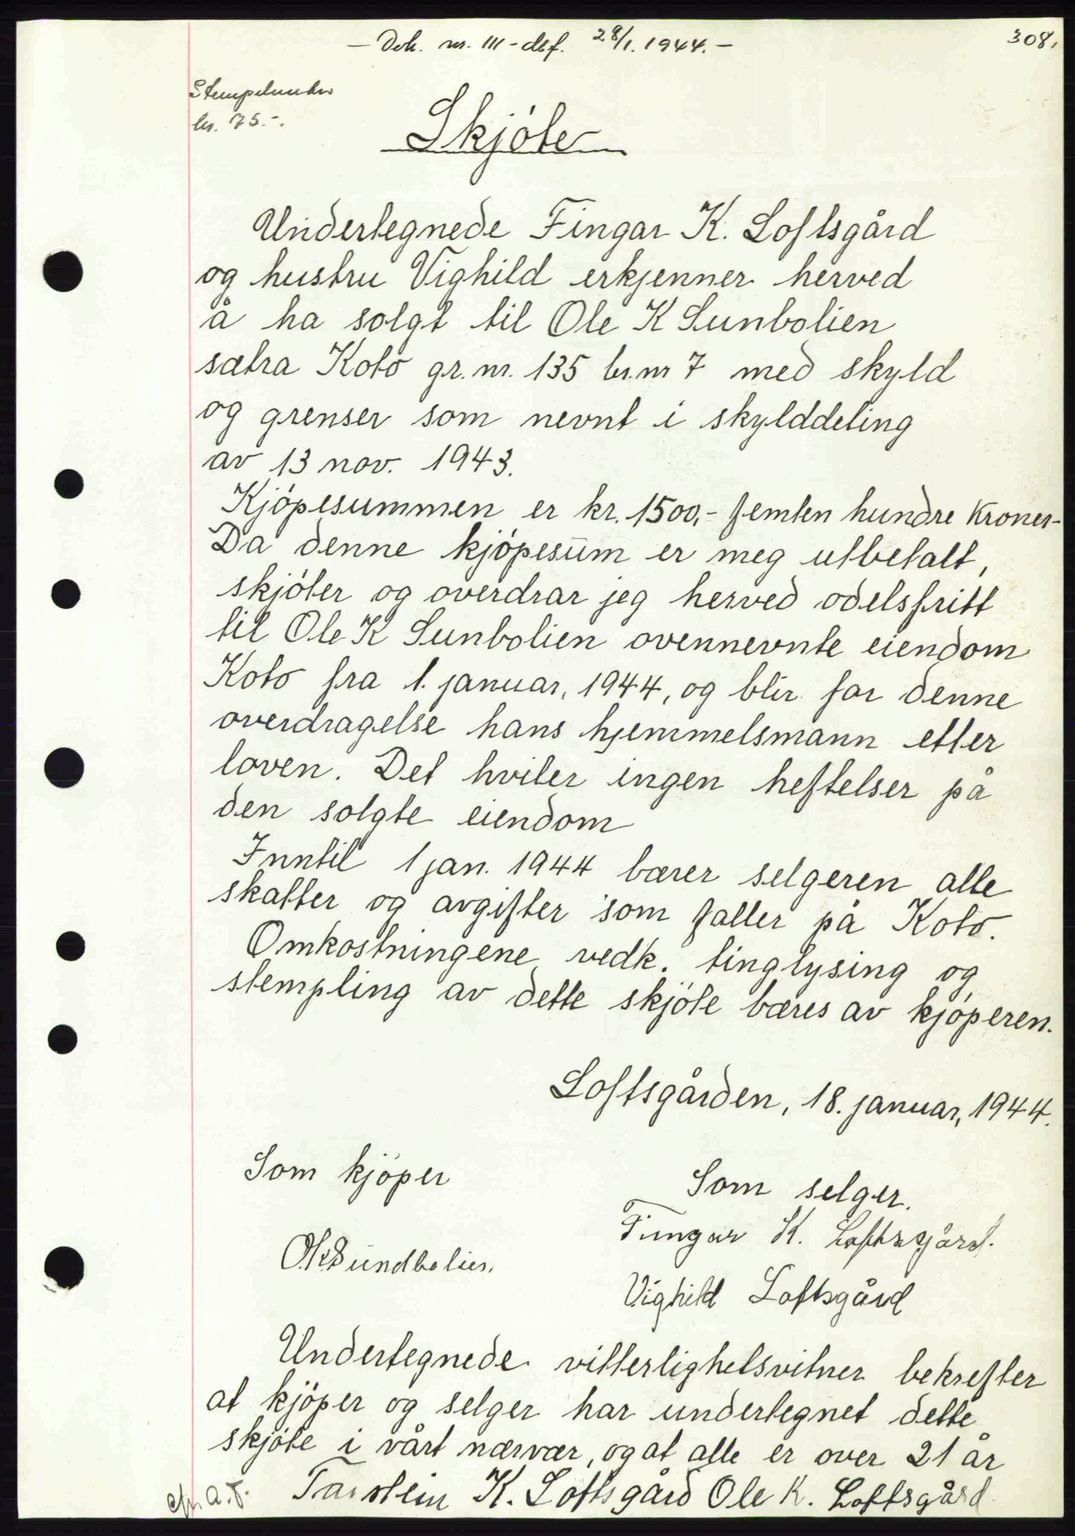 — Dok. nr. 111 - def. 28/1. 1944. —
308.
Stempelmerker
kr. 75.-.
Skjöte
Undertegnede Fingar K. Loftsgård
og hustru Vighild erkjenner herved
å ha solgt til Ole K Sunbolien
sætra Koto gr. nr. 135 br. nr 7 med skyld
og grenser som nevnt i skylddeling
av 13 nov. 1943.
Kjöpesummen er kr. 1500,- femten hundre kroner-
Da denne kjöpesum er meg utbetalt,
skjöter og overdrar jeg herved odelsfritt
til Ole K Sunbolien ovennevnte eiendom
Koto fra 1. januar, 1944, og blir for denne
overdragelse hans hjemmelsmann etter
loven. Det hviler ingen heftelser på
den solgte eiendom
Inntil 1 jan. 1944 bærer selgeren alle
skatter og avgifter som faller på Koto.
Omkostningene vedk. tinglysing og
stempling av dette skjöte bæres av kjöperen.
Loftsgården, 18. januar, 1944.
Som kjöper
Som selger.
Fingar K. Loftsgård.
O.K.Sundbolien.
Vighild Loftsgård
Undertegnede vitterlighetsvitner bekrefter
at kjöper og selger har undertegnet dette
skjöte i vårt nærvær, og at alle er over 21 år
Tarstein K. Loftsgård Ole K. Loftsgård